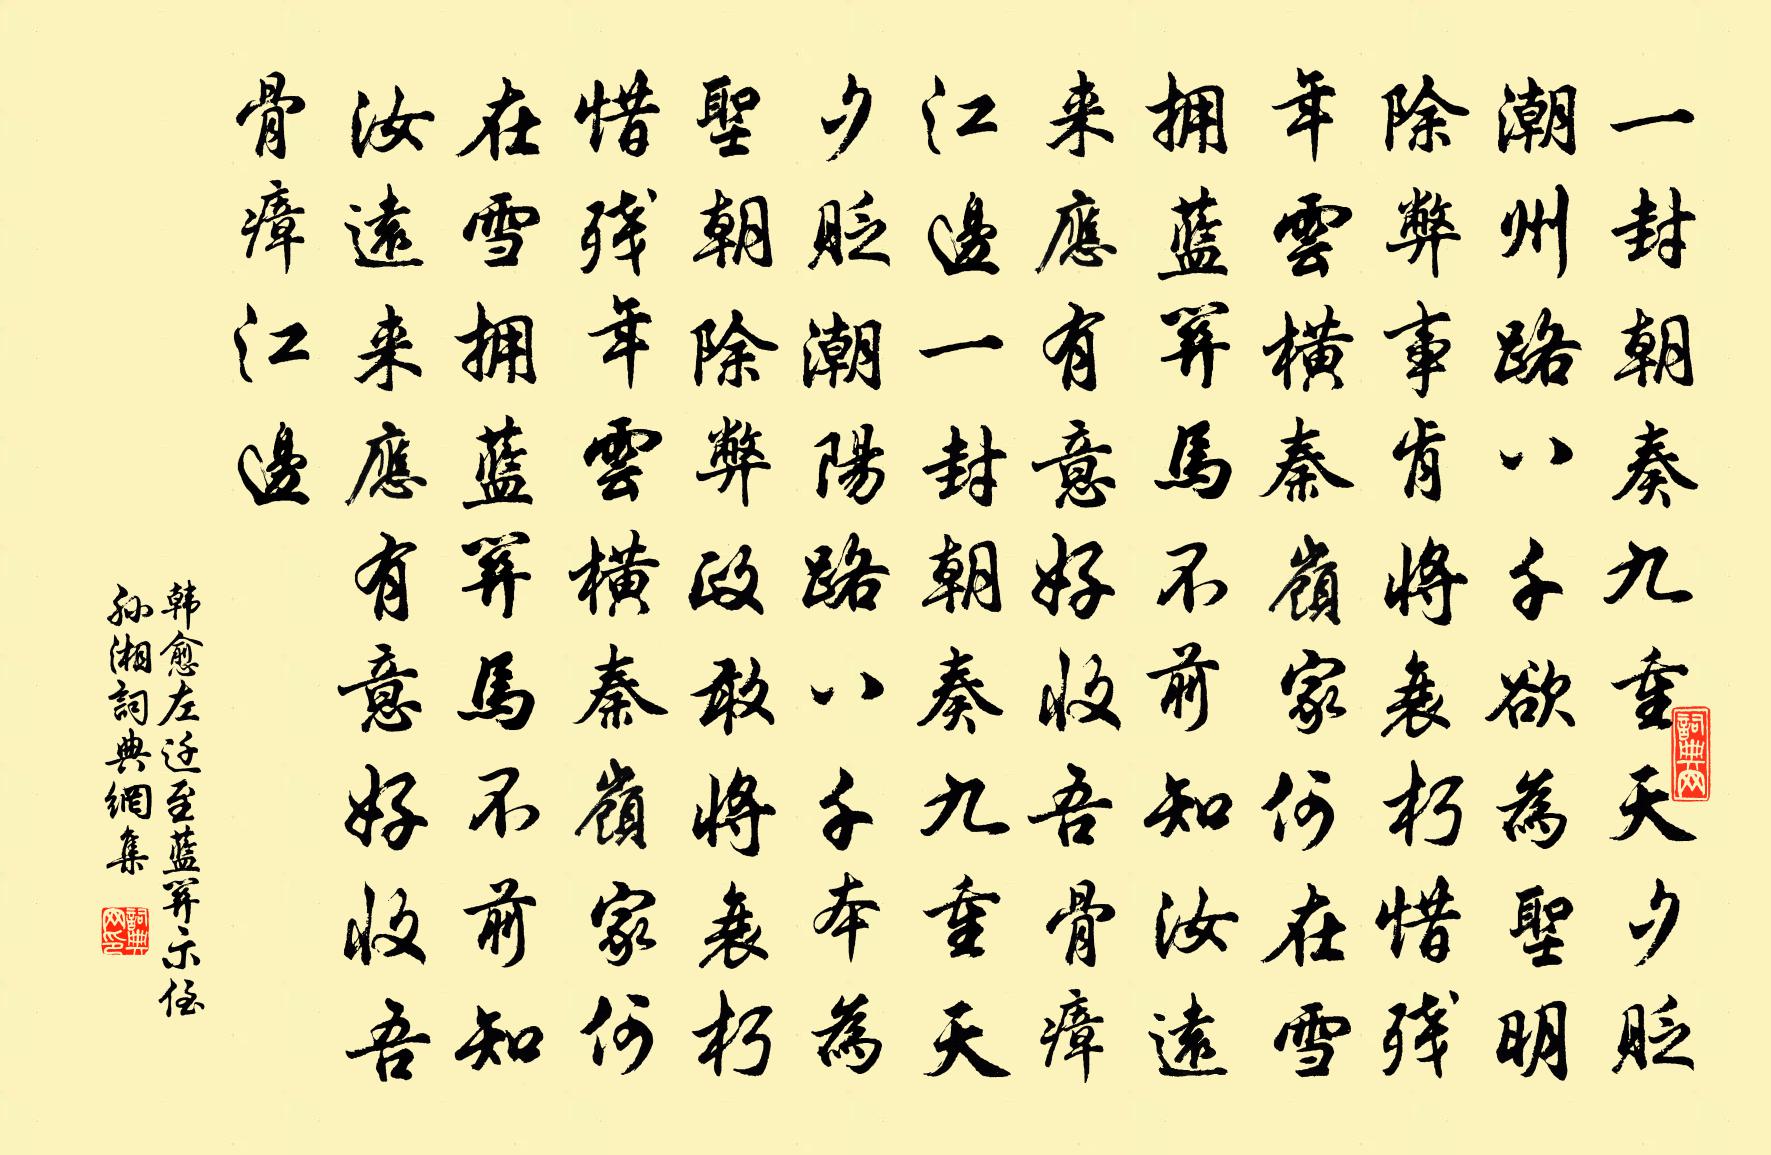 一封朝奏九重天夕貶
潮州路八千欲為聖明
除弊事肯將衰朽惜残
年雲横秦嶺家何在雪
拥藍関馬不前知汝遠
来應有意好收吾骨瘴
江邊一封朝奏九重天
夕貶潮陽路八千本為
聖朝除弊政敢將衰朽
惜残年雲横秦嶺家何
在雪拥藍関馬不前知
汝遠来應有意好收吾
骨瘴江邊
韩愈左迁至藍関示侄
孙湘詞典網集
詞典网
詞典网印